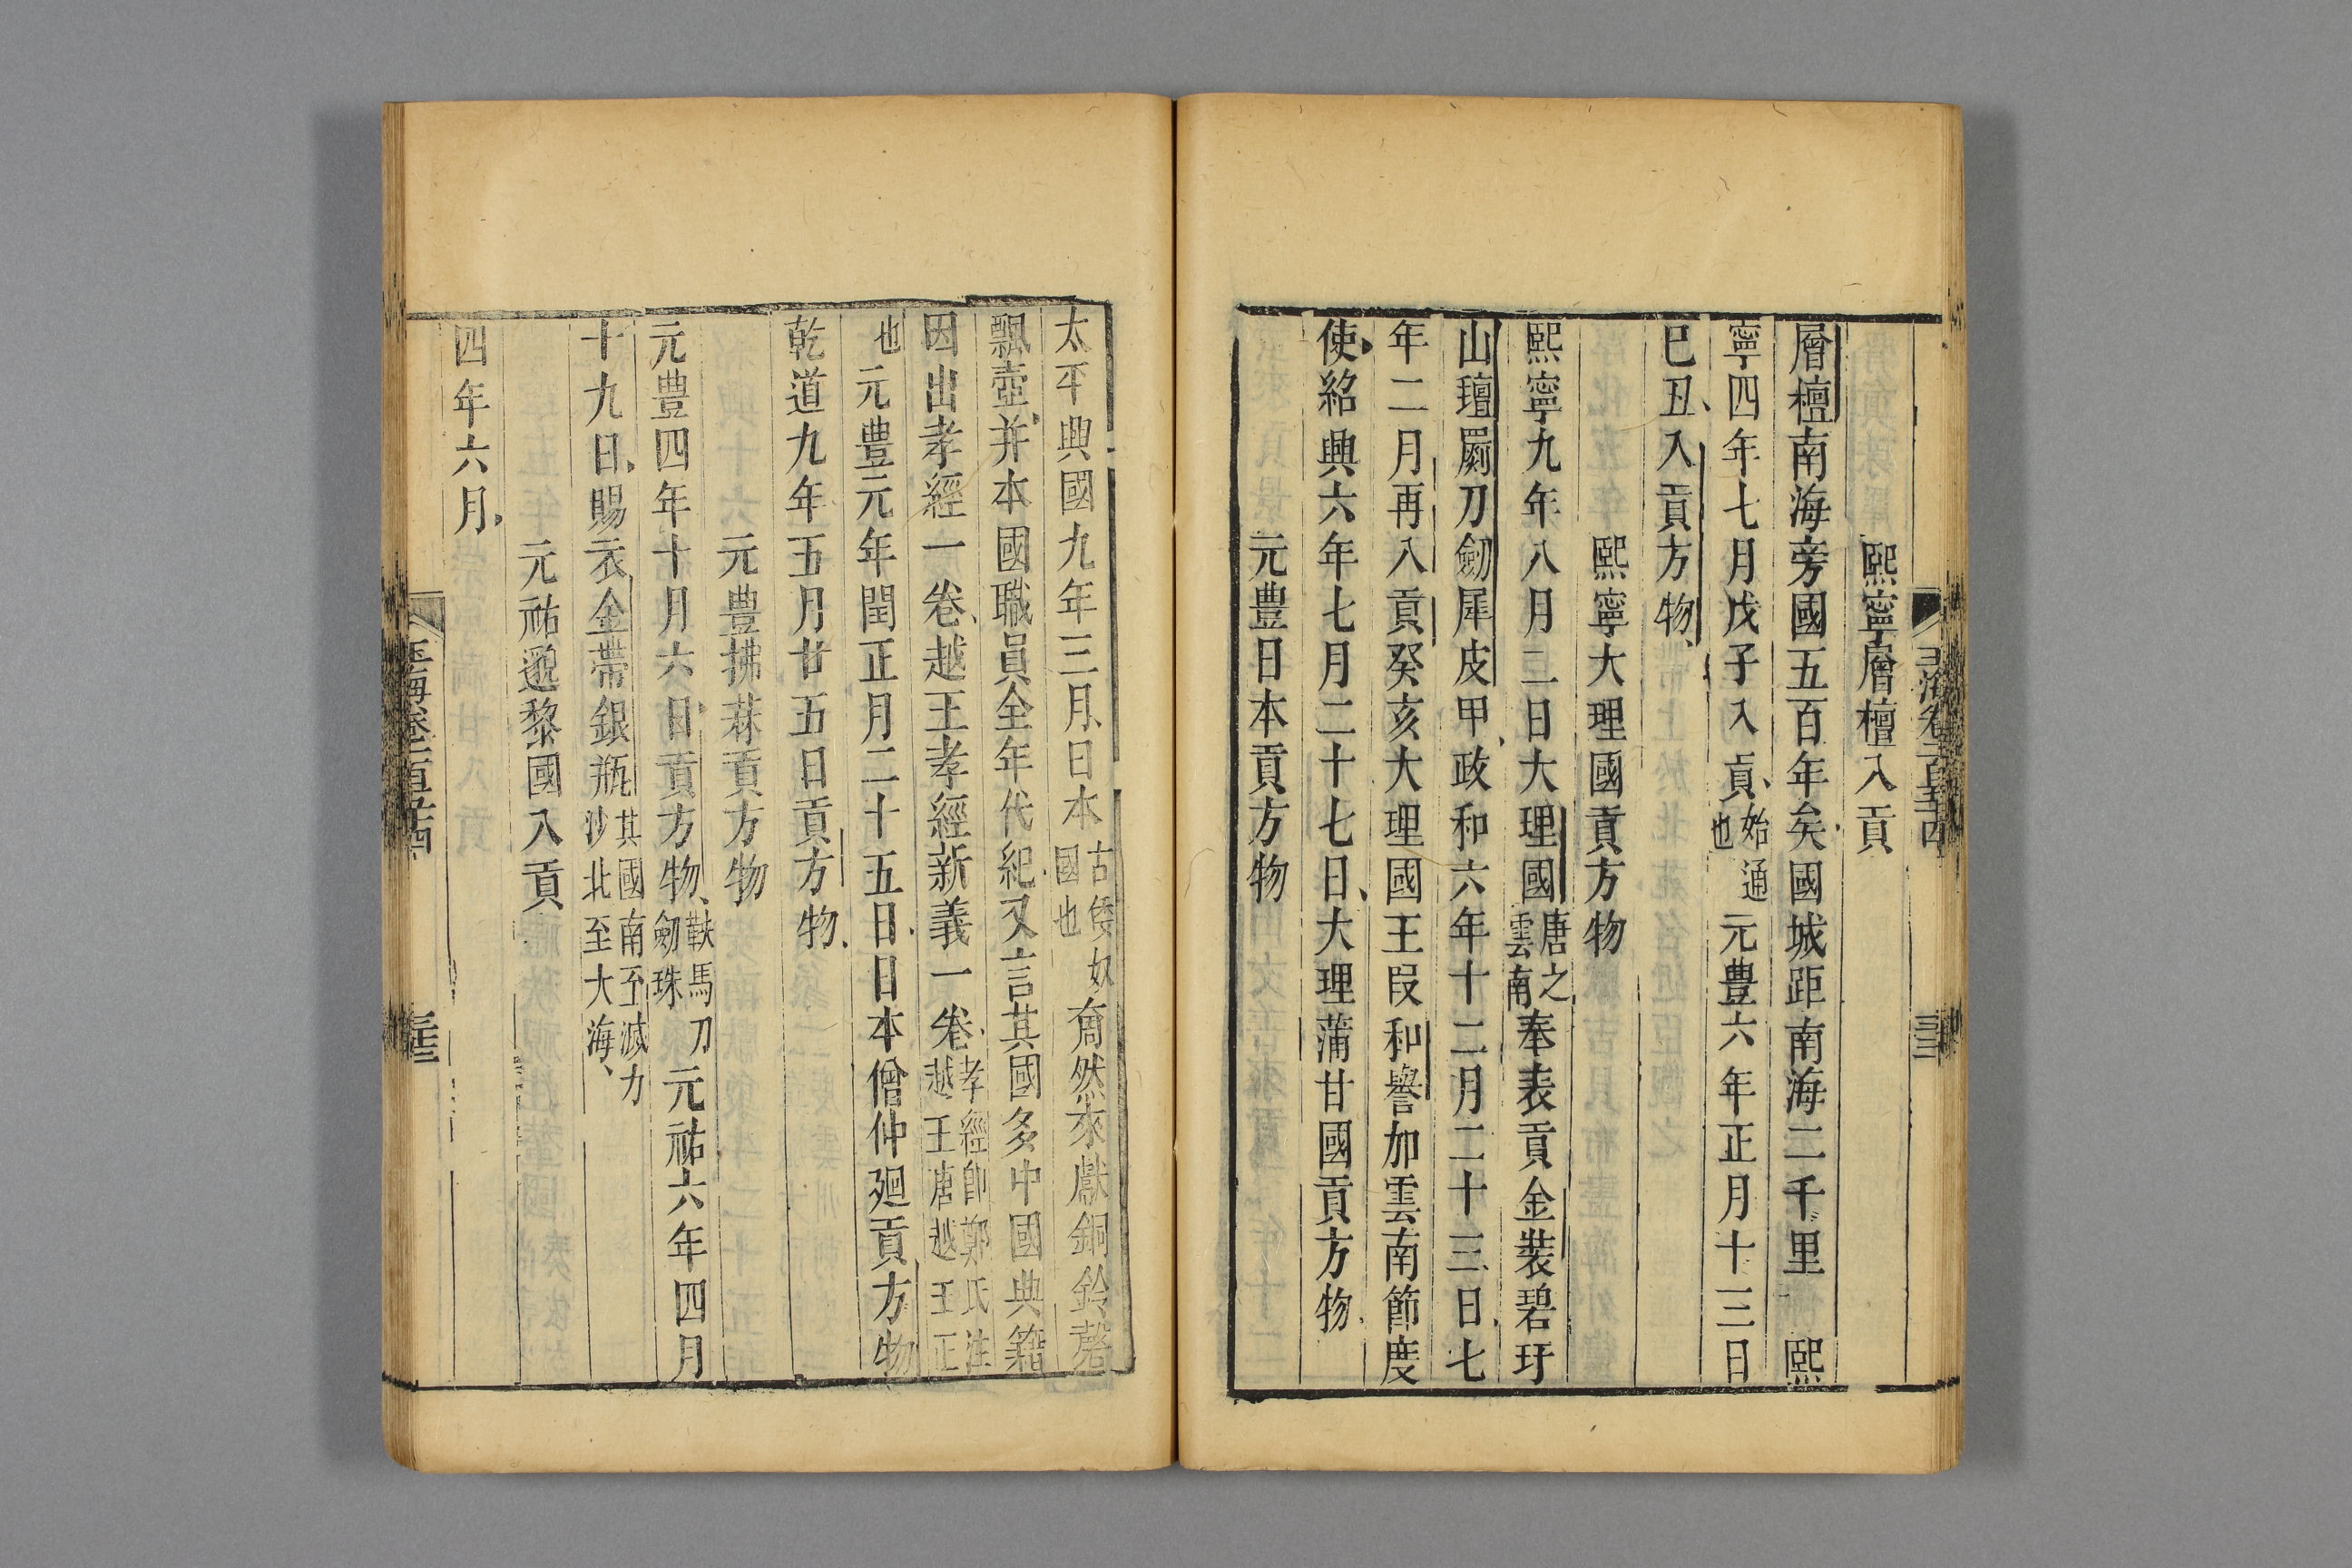 熙寧層檀入貢
層檀南海旁國五百年矣國城距南海二千里　熙
寧四年七月戊子入貢始通也元豊六年正月十三日
巳丑入貢方物
熙寧大理國貢方物
熙寧九年八月二日大理國唐之雲南奉表貢金裝碧玗
山氊罽刀劒犀皮甲政和六年十二月二十三日七
年二月再入貢癸亥大理國王段和譽加雲南節度
使紹興六年七月二十七日大理蒲甘國貢方物
元豊日本貢方物
太平興國九年三月日本古倭奴國也奝然來獻銅鈴磬
瓢壺并本國職員全年代紀又言其國多中國典籍
因出孝經一卷越王孝經新義一卷孝經即鄭氏注越王唐越王正
也元豊元年閏正月二十五日日本僧仲廻貢方物
乾道九年五月廿五日貢方物
元豊拂菻貢方物
元豊四年十月六日貢方物馬刀劒珠元祐六年四月
十九日賜衣金帶銀瓶其國南至滅力沙北至大海
元祐邈黎國入貢
四年六月
玉海卷一百五十四
三十三